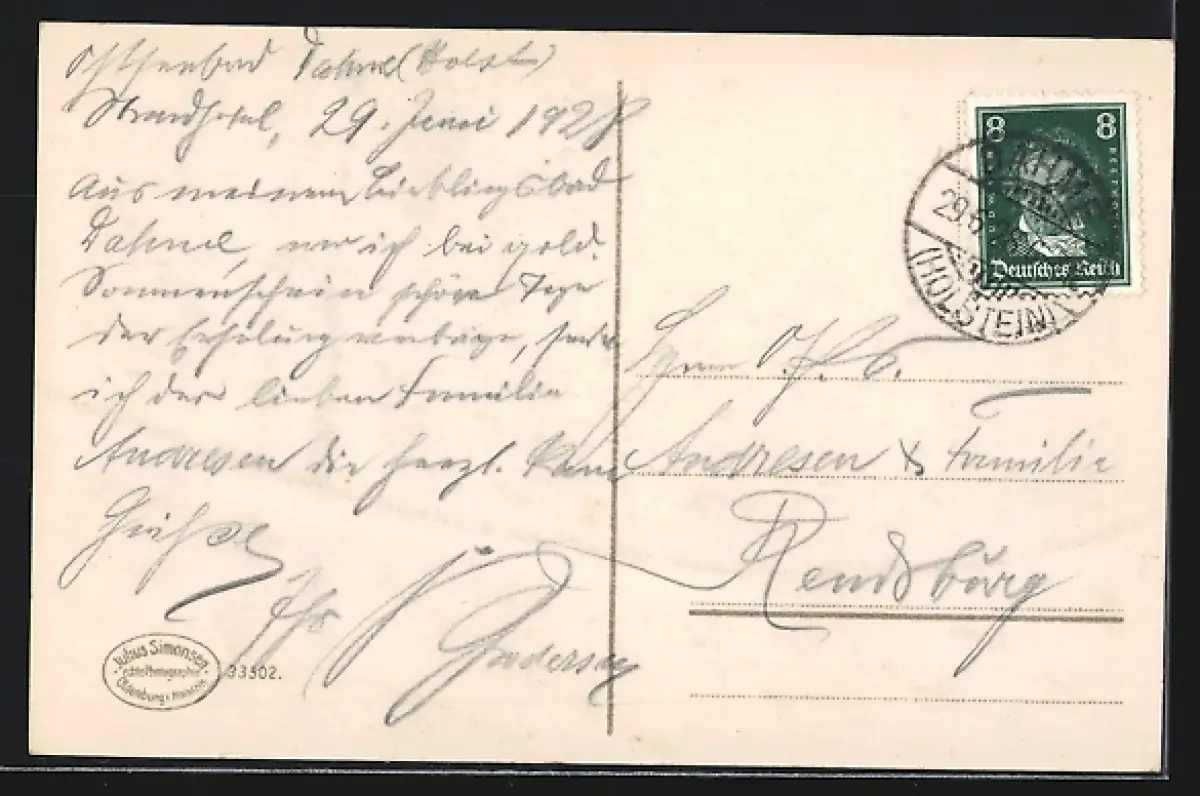 Ostseebad Dahme (Holst)
Strandhotel, 29. Juni 1928
Aus meinem Lieblingsbad
Dahme, wo ich bei gold.
Sonnenschein schöne Tage
der Erholung verbringe, sende
ich der lieben Familie
Andresen die herzl.
Grüße
Ihr
Herrn
Andresen & Familie
Rendsburg
8 8
Deutsches Reich
DAHME
29.6.
(HOLSTEIN)
Julius Simonsen
Oldenburg i. Holstein
33502.